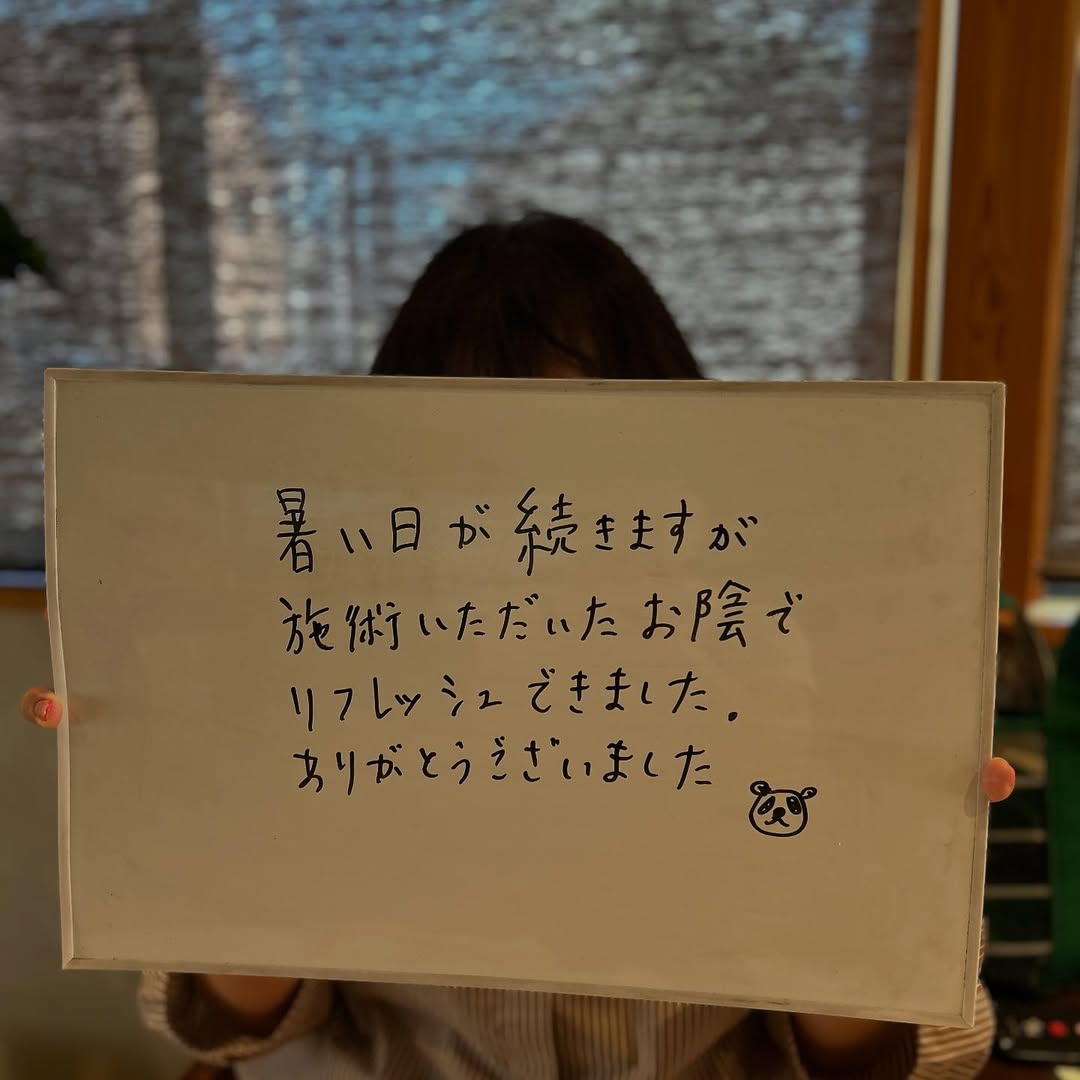 暑い日が続きますが
施術いただいたお陰で
リフレッシュできました.
ありがとうございました